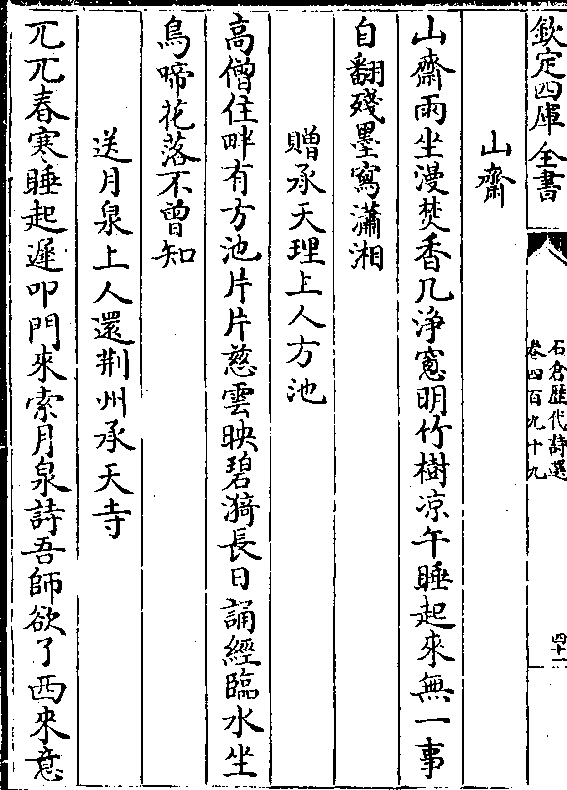 欽定四庫全書
石倉歴代詩選
卷四百九十九
四十一
山齋
山齋雨坐漫焚香几浄窻明竹樹凉午睡起來無一事
自翻殘墨寫瀟湘
贈承天理上人方池
高僧住畔有方池片片慈雲映碧漪長日誦經臨水坐
鳥啼花落不曾知
送月泉上人還荆州承天寺
兀兀春寒睡起遲叩門來索月泉詩吾師欲了西來意